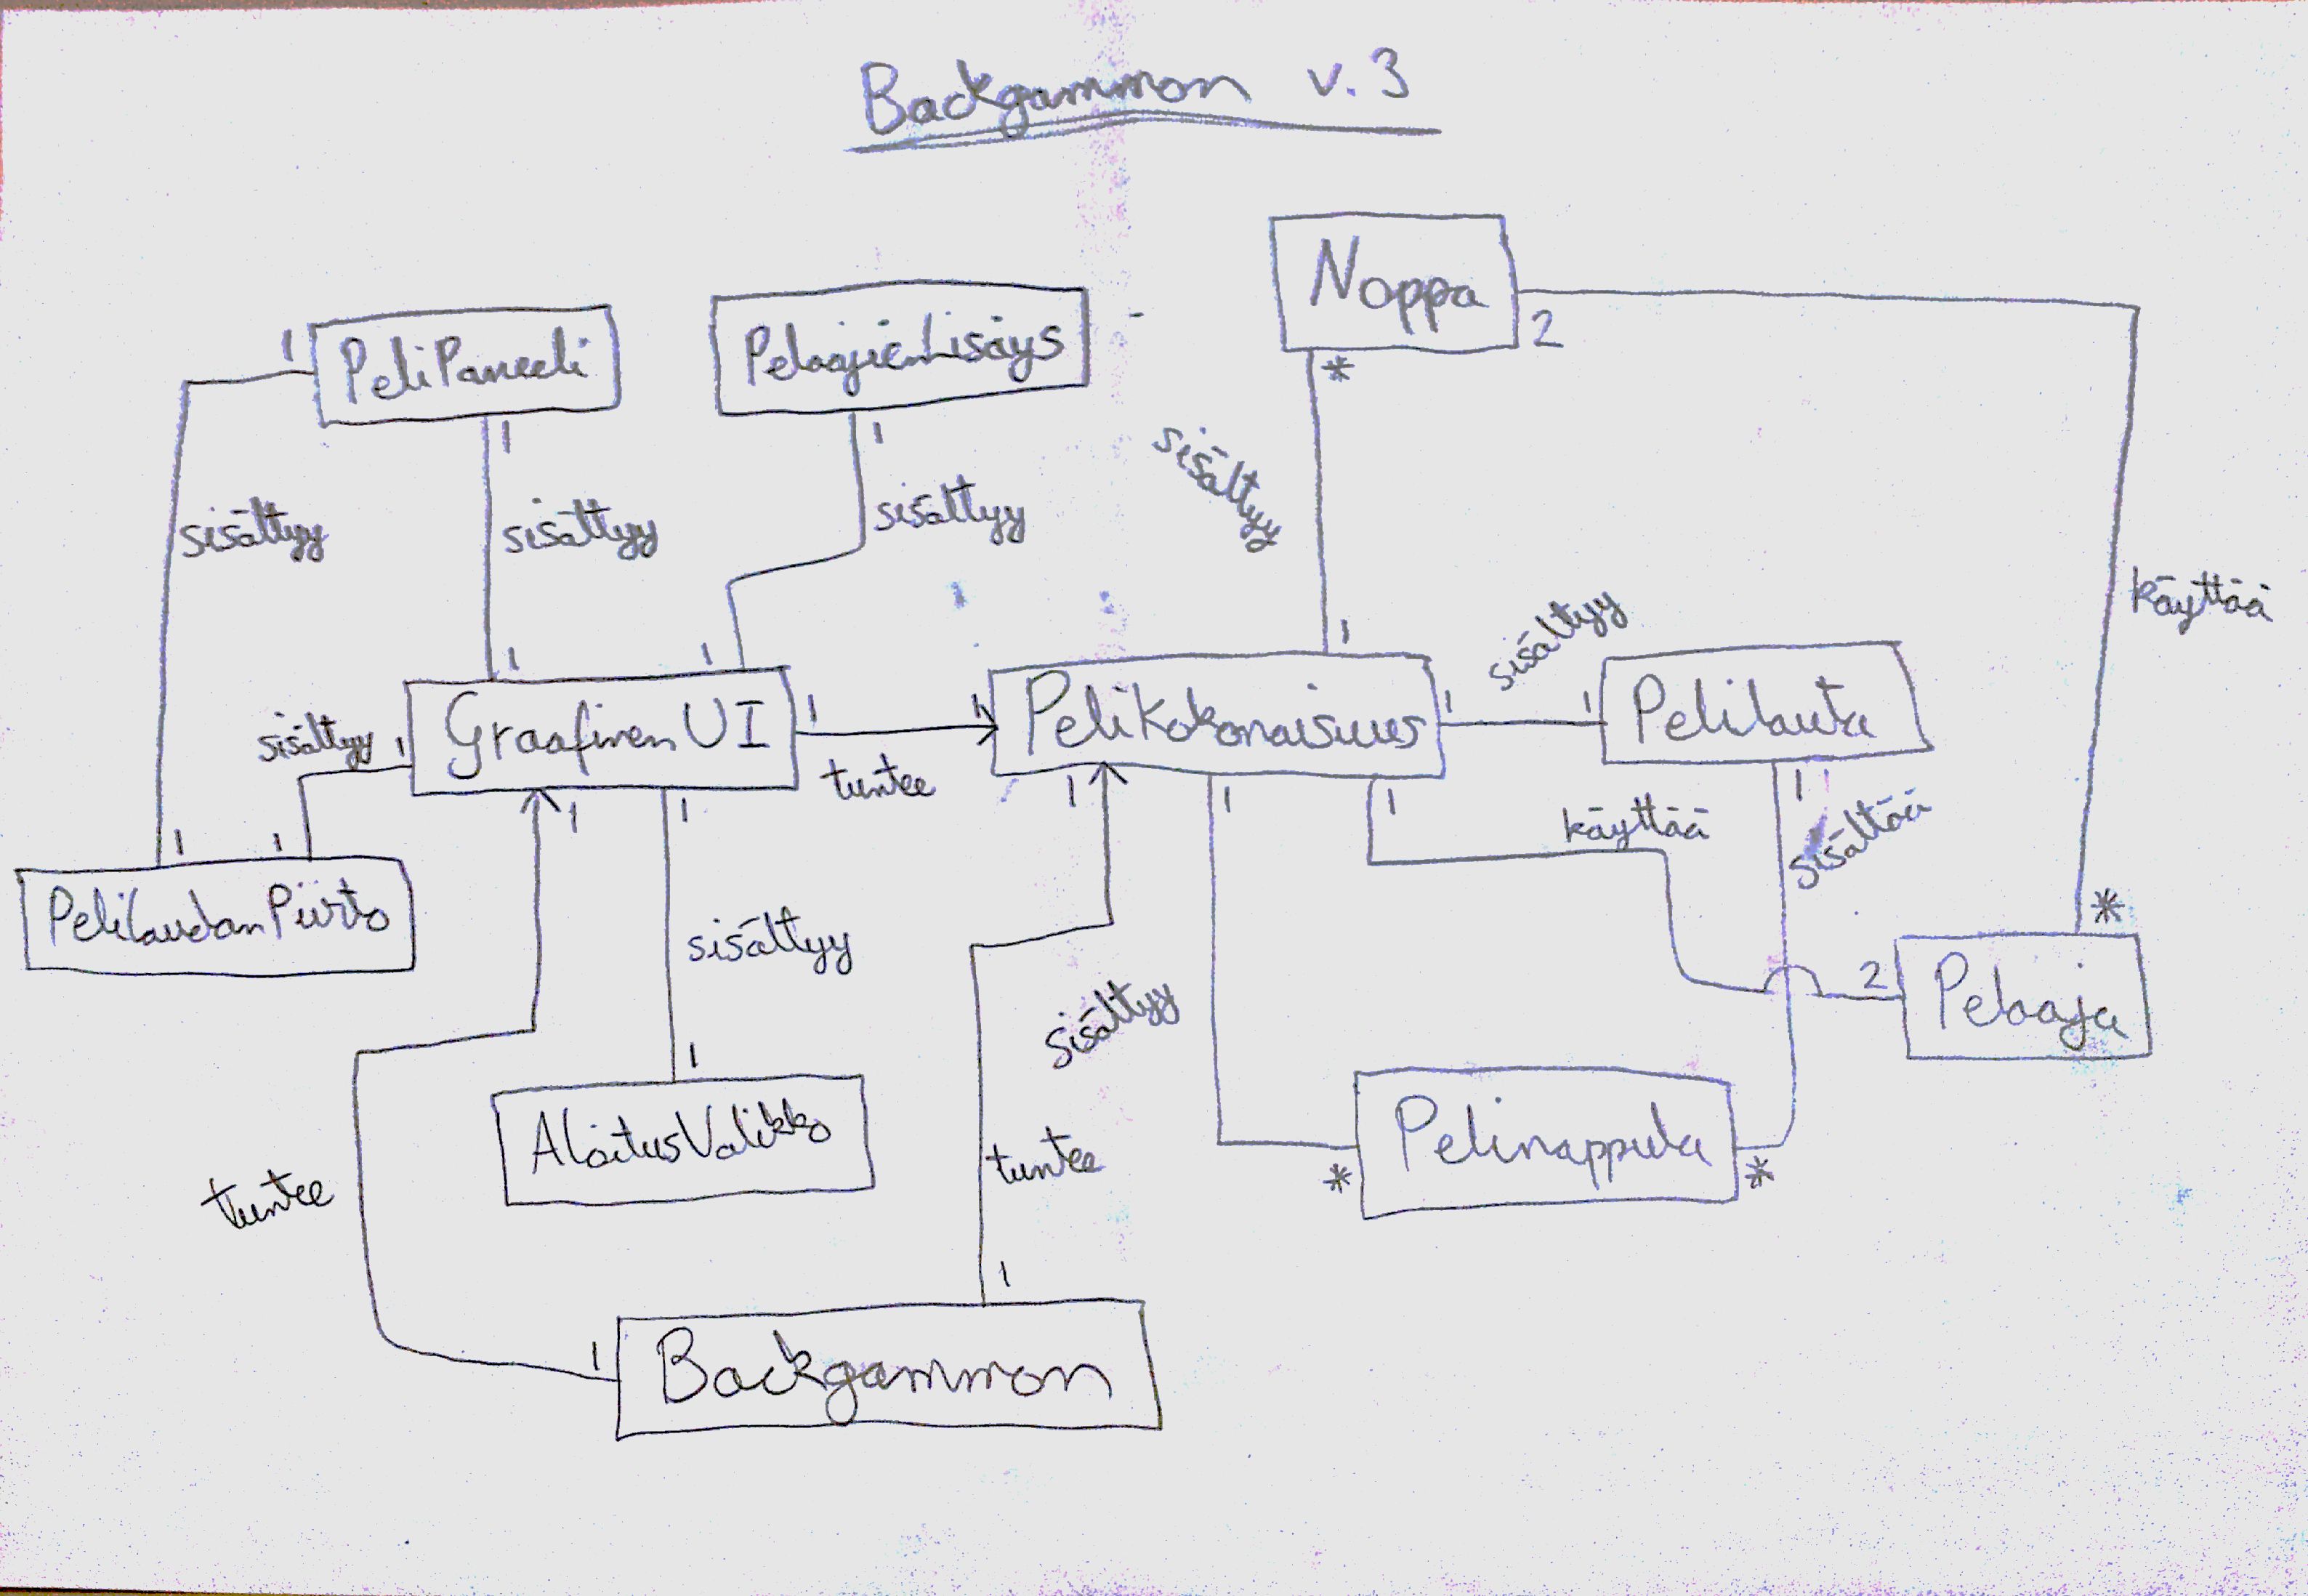 Backgammon v. 3
Noppa
2
*
1
PeliPaneeli
PelaajienLisäys
1
1
sisältyy
sisältyy
sisältyy
sisältyy
käyttää
1
1
1
sisältyy
sisältyy
1
GraafinenUI
1
1
PeliKokonaisuus
1
1
Pelilauta
tuntee
1
1
1
1
1
1
1
käyttää
sisältää
1
1
PelilaudanPiirto
sisältyy
*
2
Pelaaja
sisältyy
1
AloitusValikko
tuntee
Pelinappula
*
*
tuntee
1
1
Backgammon